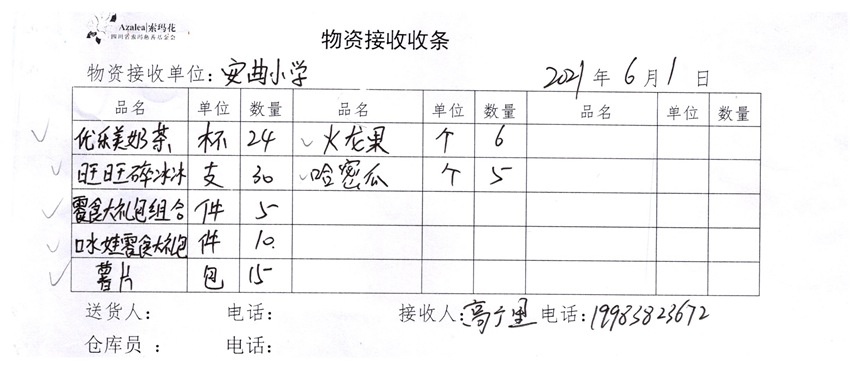 Azalea|索玛花
四川省索玛慈善基金会
物资接收收条
物资接收单位：安曲小学 2021年6月1日
品名 单位 数量 品名 单位 数量 品名 单位 数量
优乐美奶茶 杯 24 火龙果 个 6
旺旺碎冰冰 支 30 哈密瓜 个 5
零食大礼包组合 件 5
口水娃零食大礼包 件 10
薯片 包 15
送货人： 电话： 接收人：高 里 电话：19983823672
仓库员： 电话：